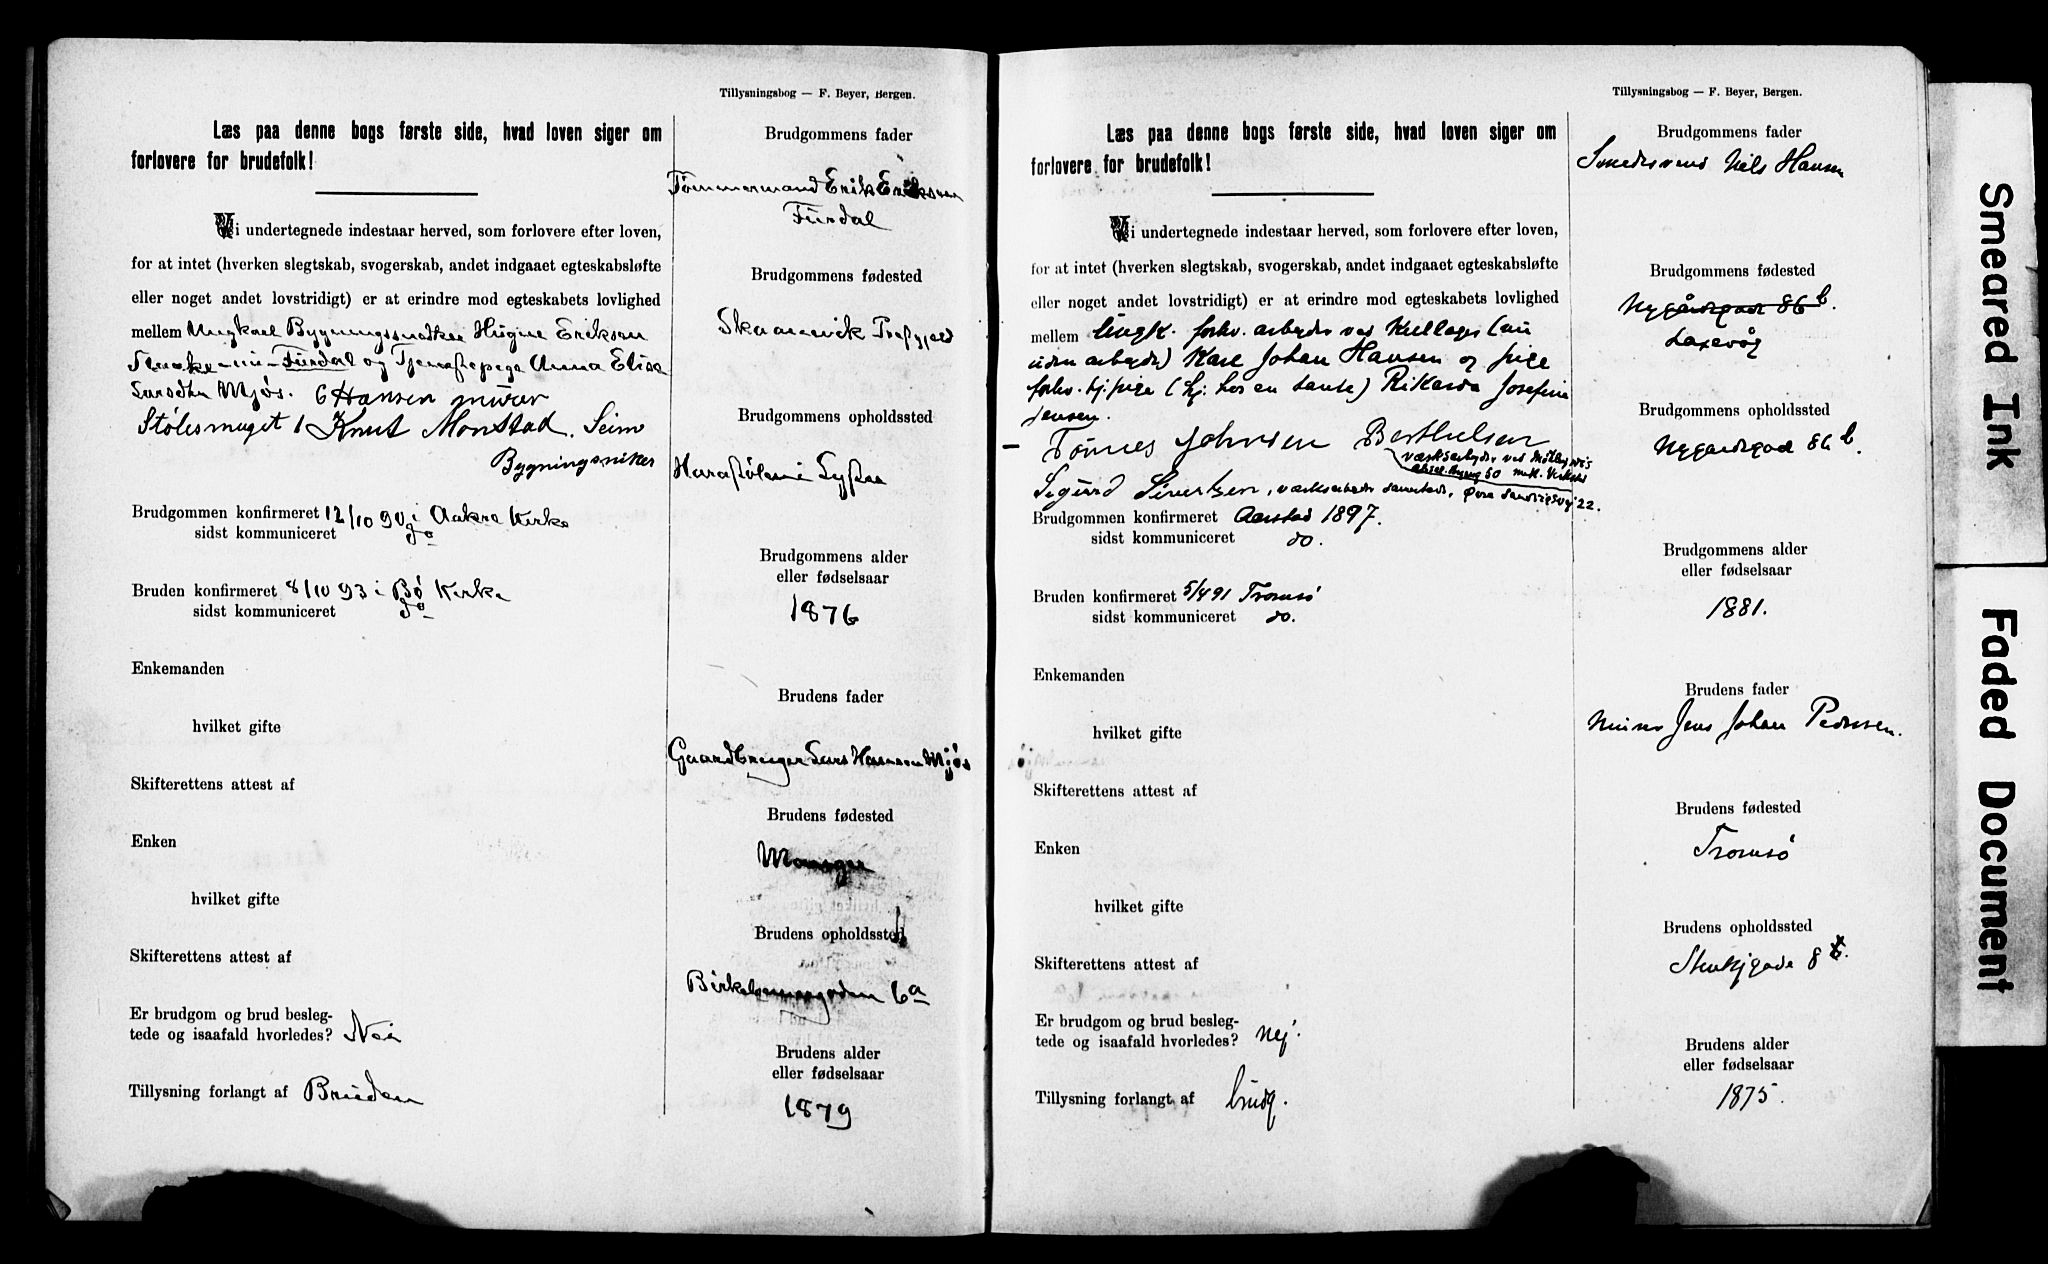 Tillysningsbog — F. Beyer, Bergen.
Læs paa denne bogs første side, hvad loven siger om
forlovere for brudefolk!
Vi undertegnede indestaar herved, som forlovere efter loven,
for at intet (hverken slegtskab, svogerskab, andet indgaaet egteskabsløfte
eller noget andet lovstridigt) er at erindre mod egteskabets lovlighed
mellem Ungkarl Bygningssnedker Eriksen
Furdal og Tjenestepige Anna Elise
Larsdtr Mjøs. G Hansen murer
Stølesmuget 1 Knut Monstad. Seim
Bygningsniker
Brudgommen konfirmeret 12/10 90 i Aakre Kirke
sidst kommuniceret do
Bruden konfirmeret 8/10 93 i Bø Kirke
sidst kommuniceret do
Enkemanden
hvilket gifte
Skifterettens attest af
Enken
hvilket gifte
Skifterettens attest af
Er brudgom og brud besleg-
tede og isaafald hvorledes? Nei
Tillysning forlangt af Bruden
Brudgommens fader
Tømmermand Erik Eriksen
Furdal
Brudgommens fødested
Skaanevik Prestgjeld
Brudgommens opholdssted
Brudgommens alder
eller fødselsaar
1876
Brudens fader
Gaardbruger Lars Hansen Mjøs
Brudens fødested
Manger
Brudens opholdssted
Birkebeinergaden 6a
Brudens alder
eller fødselsaar
1879
Tillysningsbog — F. Beyer, Bergen.
Læs paa denne bogs første side, hvad loven siger om
forlovere for brudefolk!
Vi undertegnede indestaar herved, som forlovere efter loven,
for at intet (hverken slegtskab, svogerskab, andet indgaaet egteskabsløfte
eller noget andet lovstridigt) er at erindre mod egteskabets lovlighed
mellem Ungk. forhv. arbeyder ved Kullager (nu
uden arbeyde) Karl Johan Hansen og pige
forhv. tj. pige (hj. hos en tante) Rikarda Josefine
Jensen.
Tønnes Johnsen Berthelsen
Sigurd Sivertsen, værksarbeyder samesteds, Øvre Sandviksvei 22.
Brudgommen konfirmeret Aarstad 1897.
sidst kommuniceret do.
Bruden konfirmeret 5/4 91 Tromsø
sidst kommuniceret do.
Enkemanden
hvilket gifte
Skifterettens attest af
Enken
hvilket gifte
Skifterettens attest af
Er brudgom og brud besleg-
tede og isaafald hvorledes? nej.
Tillysning forlangt af brudg.
Brudgommens fader
Smedesvend Nils Hansen
Brudgommens fødested
Nygårdsgade 86 b.
Laxevåg
Brudgommens opholdssted
Nygaardsgad 86 b
Brudgommens alder
eller fødselsaar
1881.
Brudens fader
Murer Jens Johan Pedersen.
Brudens fødested
Tromsø
Brudens opholdssted
Brudens alder
eller fødselsaar
1875.
Smeared Ink
Faded Document